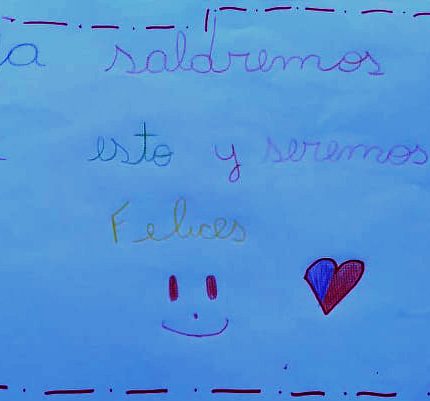 ía saldremos
esto y seremos
Felices